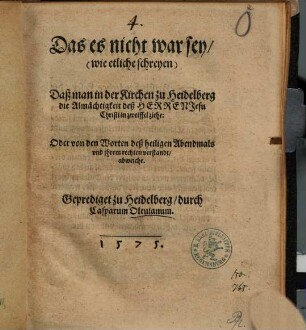 4.
Das es nicht war sey/
(wie etliche schreyen)
Daß man in der Kirchen zu Heidelberg
die Almächtigkeit deß HERREN Jesu
Christi in zweiffel ziehe:
Oder von den Worten deß heiligen Abendmals
vnd jhrem rechten verstandt/
abweiche.
Geprediget zu Heidelberg/ durch
Casparum Oleuianum.
1 5 7 5.